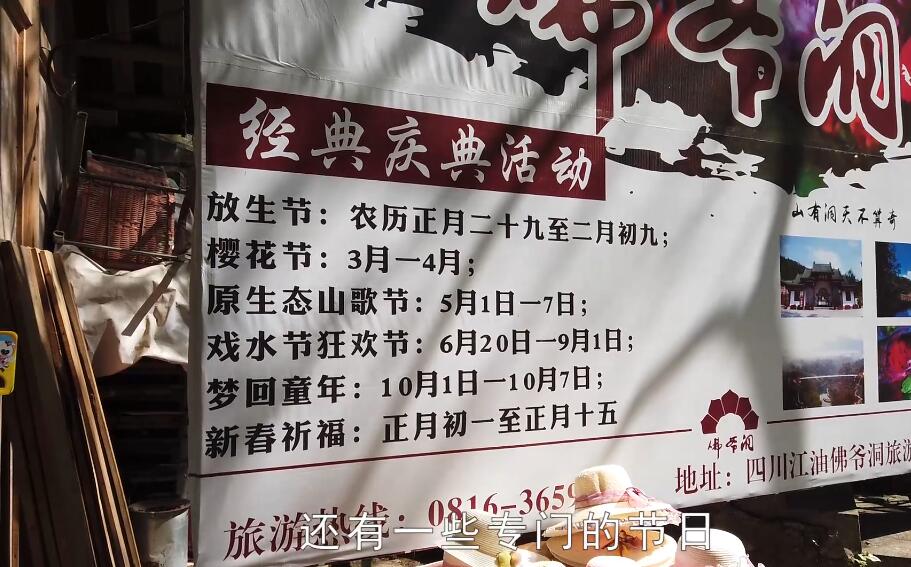 佛爷洞
经典庆典活动
放生节：农历正月二十九至二月初九；
樱花节：3月一4月；
原生态山歌节：5月1日一7日；
戏水节狂欢节：6月20日一9月1日；
梦回童年：10月1日一10月7日；
新春祈福：正月初一至正月十五
山有洞天不算奇
佛爷洞
地址：四川江油佛爷洞旅游
旅游热线：0816-3659
还有一些专门的节日